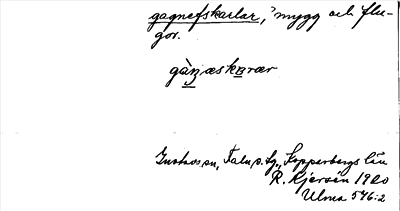 gagnefskarlar, "mygg och flu-
gor.
gàṉæskạrær
Gustavsson, Falu s. tg., Kopperbergs län
R. Kjersén 1920
Ulma 546:2